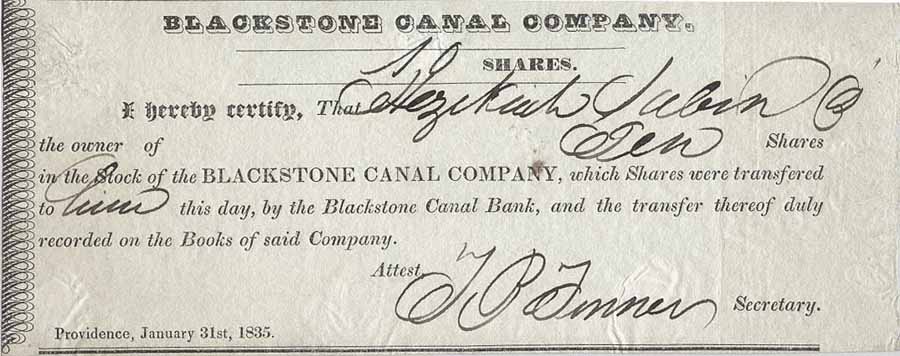 BLACKSTONE CANAL COMPANY.
10 SHARES.
I hereby certify, That Hezekiah Sabin is
the owner of Ten Shares
in the Stock of the BLACKSTONE CANAL COMPANY, which Shares were transfered
to him this day, by the Blackstone Canal Bank, and the transfer thereof duly
recorded on the Books of said Company.
Attest, Secretary.
Providence, January 31st, 1835.